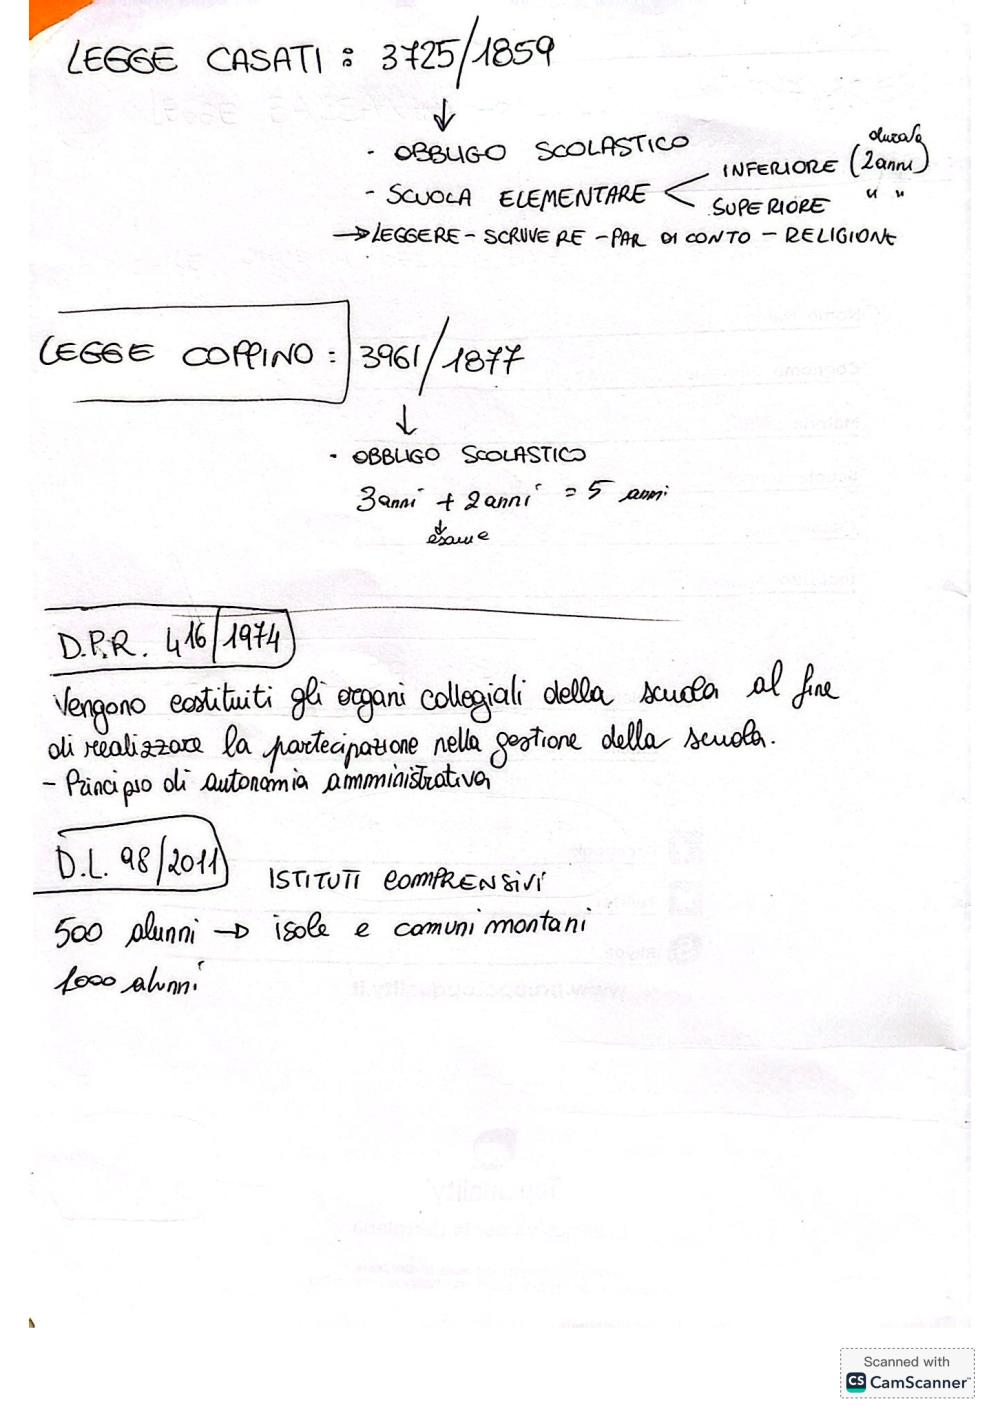 LEGGE CASATI : 3725/1859
↓
- OBBLIGO SCOLASTICO
durata
- SCUOLA ELEMENTARE < INFERIORE (2 anni)
SUPERIORE " "
→ LEGGERE - SCRIVERE - FAR DI CONTO - RELIGIONE
LEGGE COPPINO : 3961/1877
↓
- OBBLIGO SCOLASTICO
3 anni + 2 anni = 5 anni
↓
esame
D.P.R. 416/1974
Vengono costituiti gli organi collegiali della scuola al fine
di realizzare la partecipazione nella gestione della scuola.
- Principio di autonomia amministrativa
D.L. 98/2011 ISTITUTI COMPRENSIVI
500 alunni → isole e comuni montani
1000 alunni
Scanned with
CS CamScanner